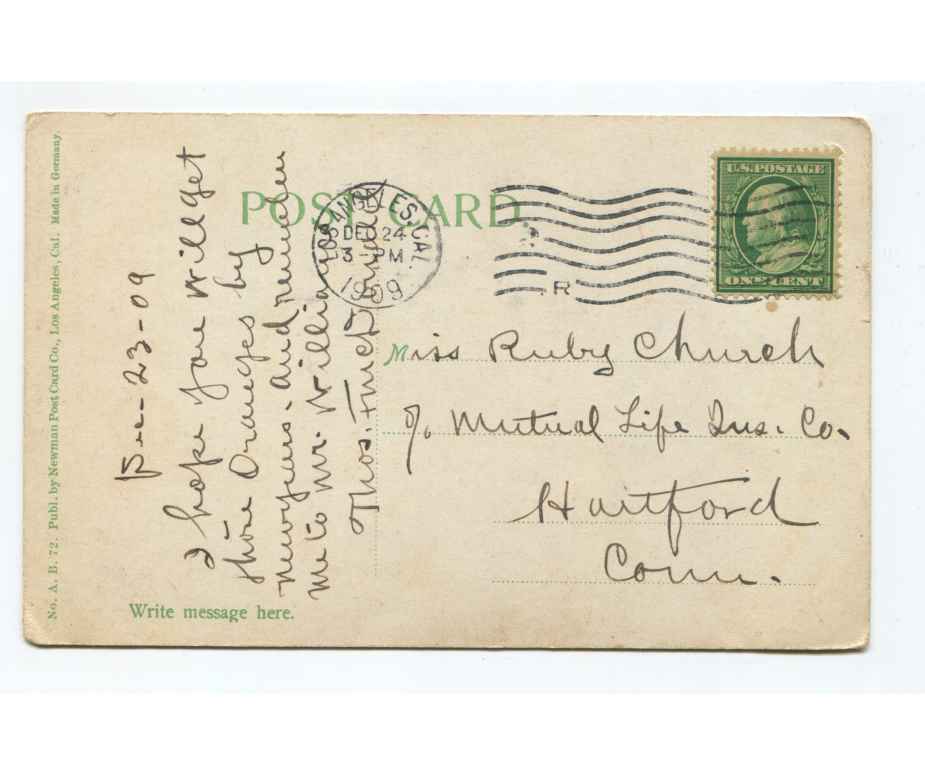 POST CARD
U.S. POSTAGE
ONE CENT
LOS ANGELES, CAL.
DEC 24
3 - PM
1909
R
Dec-23-09
I hope you will get
those Oranges by
Newyears. and remember
me to Mr. Williams
Thos.
Miss Ruby Church
c/o Mutual Life Ins. Co.
Hartford
Conn.
Write message here.
No. A. B. 72. Publ. by Newman Post Card Co., Los Angeles, Cal. Made in Germany.